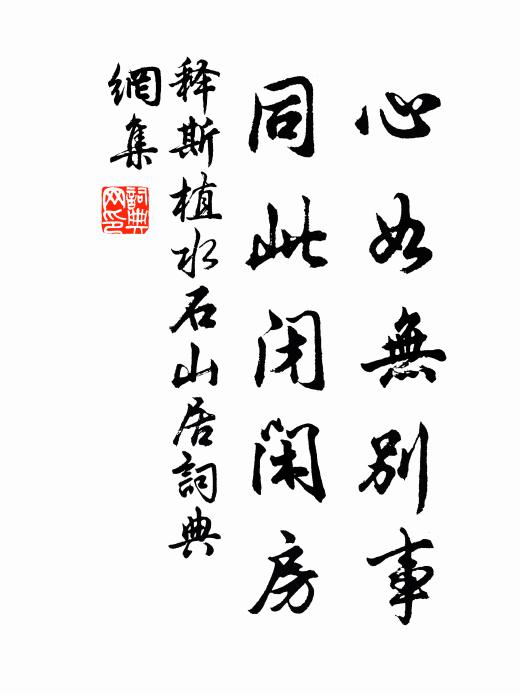 心如無別事
同此閉閑房
释斯植水石山居詞典
網集
詞典
网印